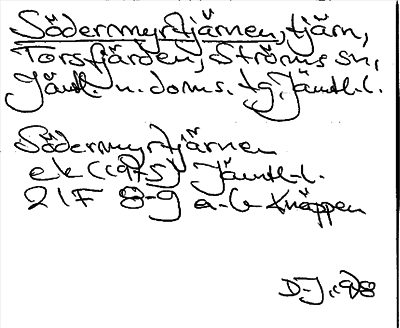 Södermyrtjärnen, tjärn,
Torsfjärden, Ströms sn,
Jämtl. n. doms. tg, Jämtl. l.
Södermyrtjärnen
ek (1975) Jämtl. l.
21F 8-9 a-b Knäppen
D-J, 1978